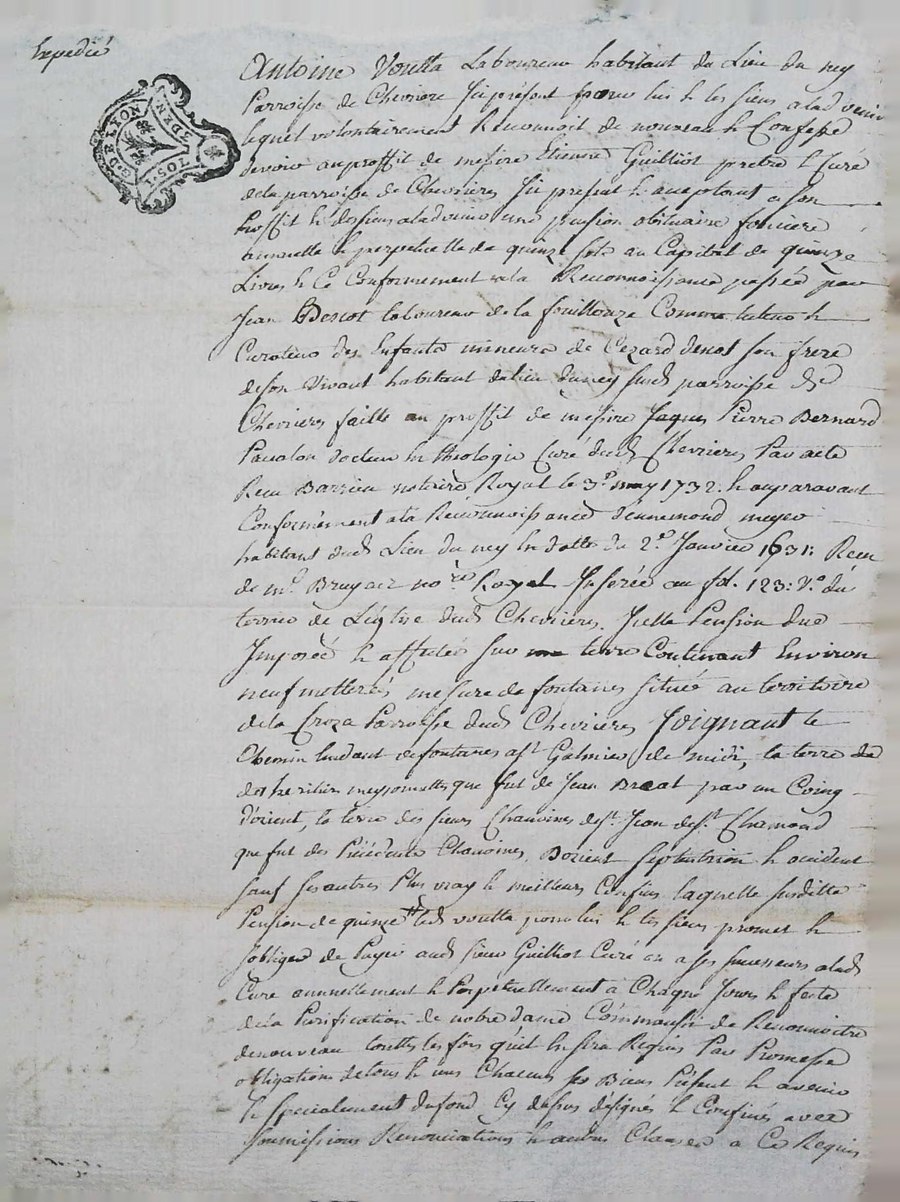 Expedié
G. DE LYON
3 DEN
I. SOT
Antoine Voutta Laboureur habitant du Lieu du ney
Parroisse de Chevriere Icy present pour lui & les siens aladvenir
lequel volontairement Reconnoit de nouveau & Confesse
devoir au proffit de messire Etienne Guilliot pretre & Curé
de la parroisse de Chevrieres Icy present & aceptant a son
Proffit & des siens aladvenir une pension obituaire fonciere
annuelle & perpetuelle de quinze sols au Capital de quinze
Livres & Ce Conformement ala Reconnoissance passée par
Jean Descot laboureur de la fouillouze Comme tuteur &
Curateur des Enfants mineurs de Cezard son frere
de son Vivant habitant du lieu du ney susd parroisse de
Chevrieres faitte au proffit de messire Jaques Pierre Bernard
docteur en theologie Curé dud Chevrieres Par acte
Receu Barrieu notaire Royal le 3e may 1732. & auparavant
Conformément a la Reconnoissance d'ennemond meyer
habitant dud Lieu du ney en datte du 2e Janvier 1631: Receu
de me Bruyas nore Royal Inserée au fol. 123: Vo du
terrier de L'église dud Chevrieres. Jcelle Pension due
Imposée & affectée sur une terre Contenant Environ
neuf metterées mesure de fontanes située au territoire
de la Croza Parroisse dud Chevrieres Joignant le
Chemin tendant de fontanes a st Galmier de midi, la terre de
des heritiers que fut de Jean par un Coing
d'orient, la terre des sieurs Chanoines de st. Jean de st. Chamond
que fut des Précédents Chanoines, Dorient Septentrion & occident
sauf ses autres Plus vrays & meilleurs Confins laquelle susditte
Pension de quinze s led voutta pour lui & les siens promet &
soblige de Payer aud sieur Guilliot Curé ou a ses successeurs alad
Cure annuellement & Perpetuellement à Chaque Jour & feste
de la Purification de notre dame Commansir de Reconnoitre
de nouveau touttes les fois qu'il En sera Requis Par Promesse
obligations de tous & uns Chacuns ses Biens Présent & avenir
& specialement du fond Cy dessus désigné & Confiné avec
soumissions Renonciations & autres Clauses a Ce Requis